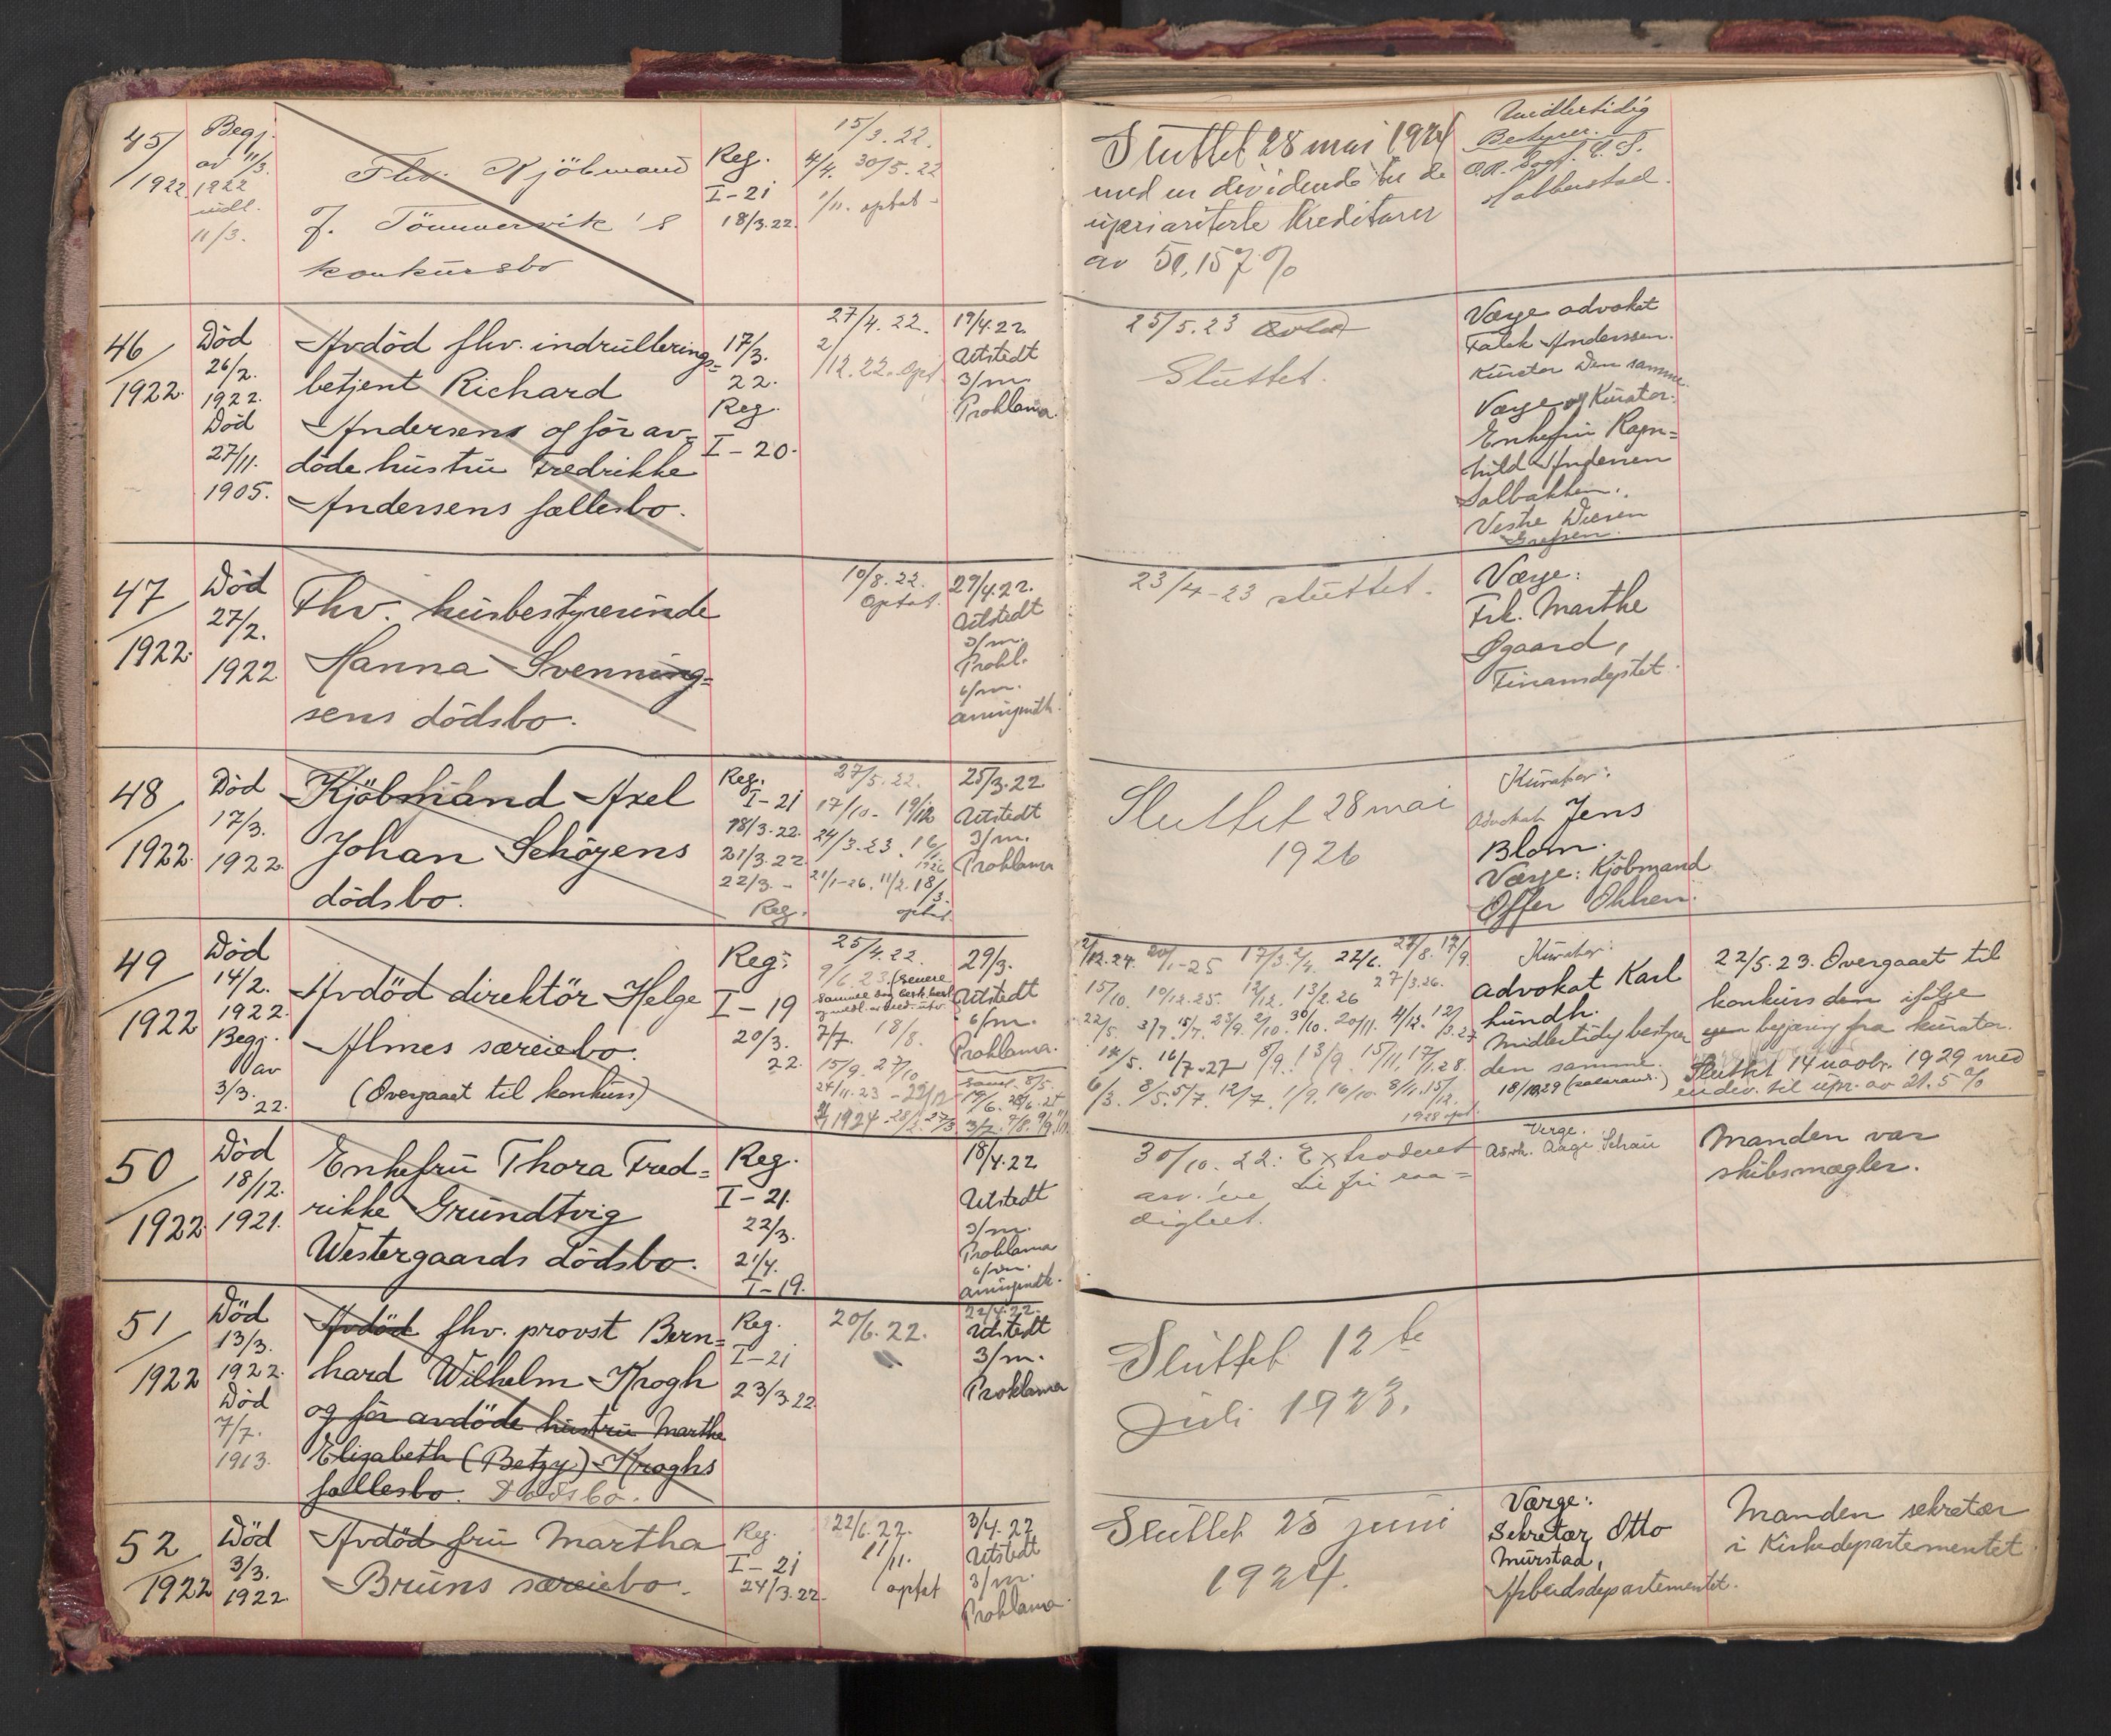 45/1922
Begj.
av 11/3.
1922
indl.
11/3.
Fhv. Kjöbmand
J. Tömmervik's
konkursbo
Reg.
I-21
18/3.22.
15/3.22.
4/4. 30/5.22
1/11. optat
Sluttet 28 mai 1924
med en dividende til de
upriariterte Kreditorer
av
Midlertidig
Bestyrer.
46/1922.
Död
26/2.
1922.
Död
27/11.
1905.
Avdöd fhv. indrullerings=
betjent Richard
Andersens og för av=
döde hustru Fredrikke
Andersens fællesbo.
17/3.
22.
Reg.
I-20.
27/4.22.
2/12.22. opt
19/4.22
Utstedt
3/m.
Proklama.
25/5.23
Sluttet.
Værge advokat
Falck Anderssen.
Kurator Den samme.
Værge og Kurator.
Enkefru Ragn=
hild Andersen
Solbakken.
Grefsen.
47/1922.
Död
27/2.
1922
Fhv. husbestyrerinde
Hanna Svenning=
sens dödsbo.
10/8.22.
optat.
29/4.22.
Utstedt
3/m.
Prokl.
6/m.
23/4-23 sluttet.
Værge:
Frk. Marthe
Øgaard,
Finansdeptet.
48/1922.
Död
17/3.
1922.
Kjöbmand Axel
Johan Schöyens
dödsbo.
Reg.
I-21
18/3.22.
21/3.22
22/3.-
Reg.
27/5.22.
17/10- 19/12
24/3.23.
21/1-26. 11/2. 18/3.
optat
25/3.22
Utstedt
3/m.
Proklama
Sluttet 28 mai
1926
Kurator:
Advokat Jens
Blom.
Værge: Kjöbmand
Offer Olsen.
49/1922
Död
14/2.
1922.
Begj.
av
3/3.
22.
Avdöd direktör Helge
Almes særeiebo.
(Overgaaet til konkurs)
Reg:
I-19
20/3.
22.
25/4.22.
9/6.23.
7/7. 18/8.
15/9. 27/10
24/11.23 - 22/12
29/3.
Utstedt
6/m.
Proklama.
2/12.24. 20/1-25 17/3. 2/4. 22/6. 27/8. 17/9
15/10. 10/12.25. 12/12. 13/2.26 27/3.26.
22/5. 3/7. 15/7. 23/9. 2/10. 30/10. 20/11. 4/12. 12/3.27
14/5. 16/7.27 8/9. 13/9. 15/11. 17/1.28.
6/3. 8/5. 5/7. 12/7. 1/9. 16/10. 8/11. 15/12.
1928 opt.
Kurator:
advokat Karl
Lundh.
Midlertidig bestyrer
den samme.
22/5.23. Overgaaet til
konkurs den ifölge
begjæring fra kurator.
Sluttet 14 novbr. 1929 med
en dev. til upr. av 21.5%
50/1922.
Död
18/12.
1921.
Enkefru Thora Fred=
rikke Grundtvig
Westergaards dödsbo.
Reg.
I-21.
22/3.
21/4.
I-19.
18/4.22
Utstedt
3/m.
Proklama
6/m.
30/10.22: Extraderet
arv.'ne til fri raa=
dighet.
Verge.
Manden var
skibsmægler.
51/1922
Död
13/3.
1922.
Död
7/7.
1913.
Avdöd fhv. provst Bern=
hard Wilhelm Krogh
og för avdöde hustru Marthe
Elizabeth (Betzy) Kroghs
fællesbo. Dödsbo.
Reg.
I-21
23/3.22
20/6.22.
22/4.22.
Utstedt
3/m.
Proklama
Sluttet 12te
juli 1923.
52/1922
Död
3/3.
1922.
Avdöd fru Martha
Bruns særeiebo.
Reg.
I-21
24/3.22.
22/6.22.
11/11.
optat
3/4.22
Utstedt
3/m.
Proklama
Sluttet 25 juni
1924.
Værge:
Sekretær Otto
Murstad,
Arbeidsdepartementet.
Manden sekretær
i Kirkedepartementet